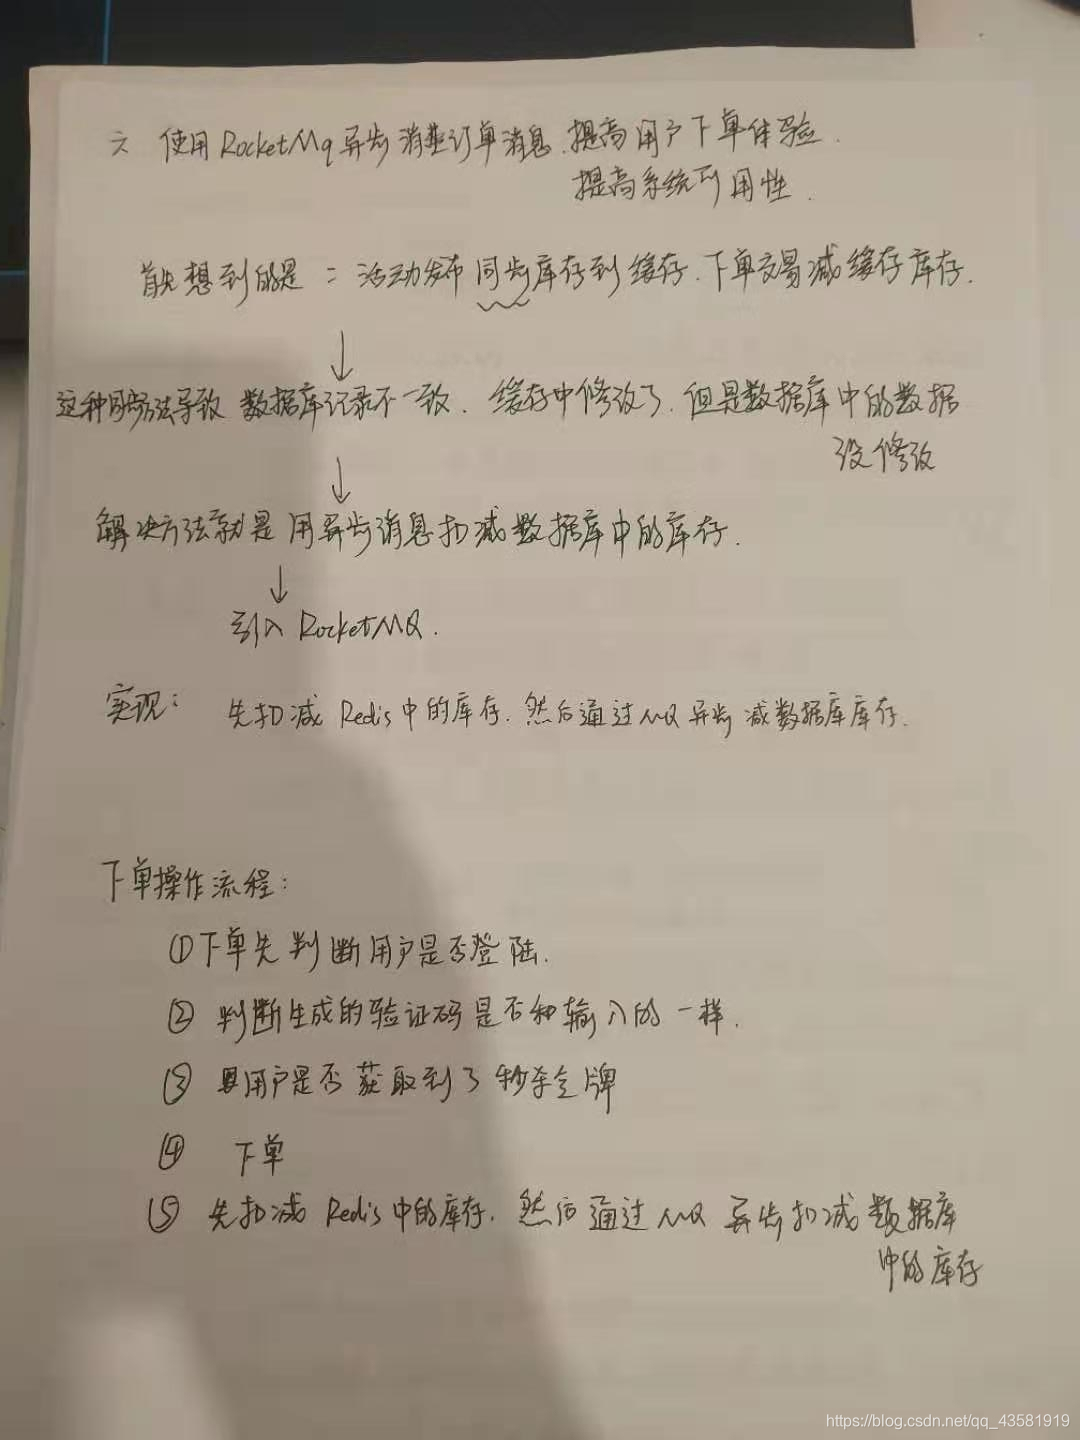 六 使用RocketMq异步消费订单消息.提高用户下单体验.
提高系统可用性.
首先想到的是:活动发布同步库存到缓存.下单交易减缓存库存.
↓
这种同步方法导致数据库记录不一致.缓存中修改了.但是数据库中的数据
没修改
↓
解决方法就是用异步消息扣减数据库中的库存.
↓
引入RocketMQ.
实现: 先扣减Redis中的库存.然后通过MQ异步减数据库库存.
下单操作流程:
①下单先判断用户是否登陆.
② 判断生成的验证码是否和输入的一样.
③ 用户是否获取到了秒杀令牌
④ 下单
⑤ 先扣减Redis中的库存.然后通过MQ异步扣减数据库
中的库存
https://blog.csdn.net/qq_43581919